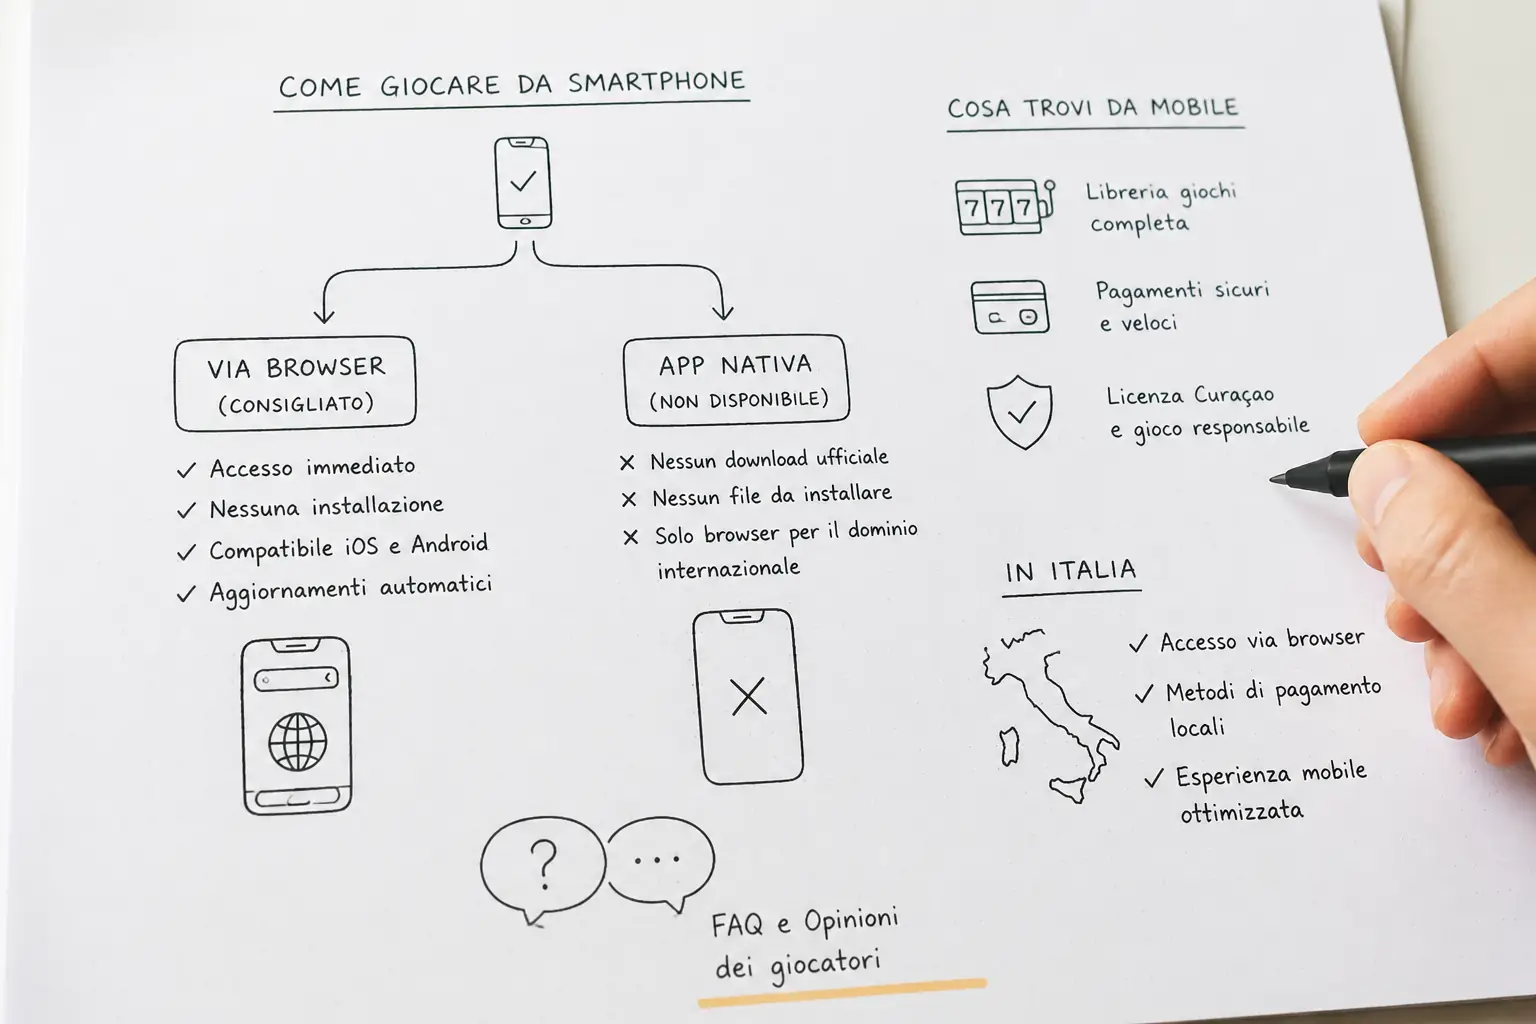 COME GIOCARE DA SMARTPHONE
VIA BROWSER
(CONSIGLIATO)
✓ Accesso immediato
✓ Nessuna installazione
✓ Compatibile iOS e Android
✓ Aggiornamenti automatici
APP NATIVA
(NON DISPONIBILE)
✕ Nessun download ufficiale
✕ Nessun file da installare
✕ Solo browser per il dominio
internazionale
?
...
FAQ e Opinioni
dei giocatori
COSA TROVI DA MOBILE
777
Libreria giochi
completa
Pagamenti sicuri
e veloci
Licenza Curaçao
e gioco responsabile
IN ITALIA
✓ Accesso via browser
✓ Metodi di pagamento
locali
✓ Esperienza mobile
ottimizzata